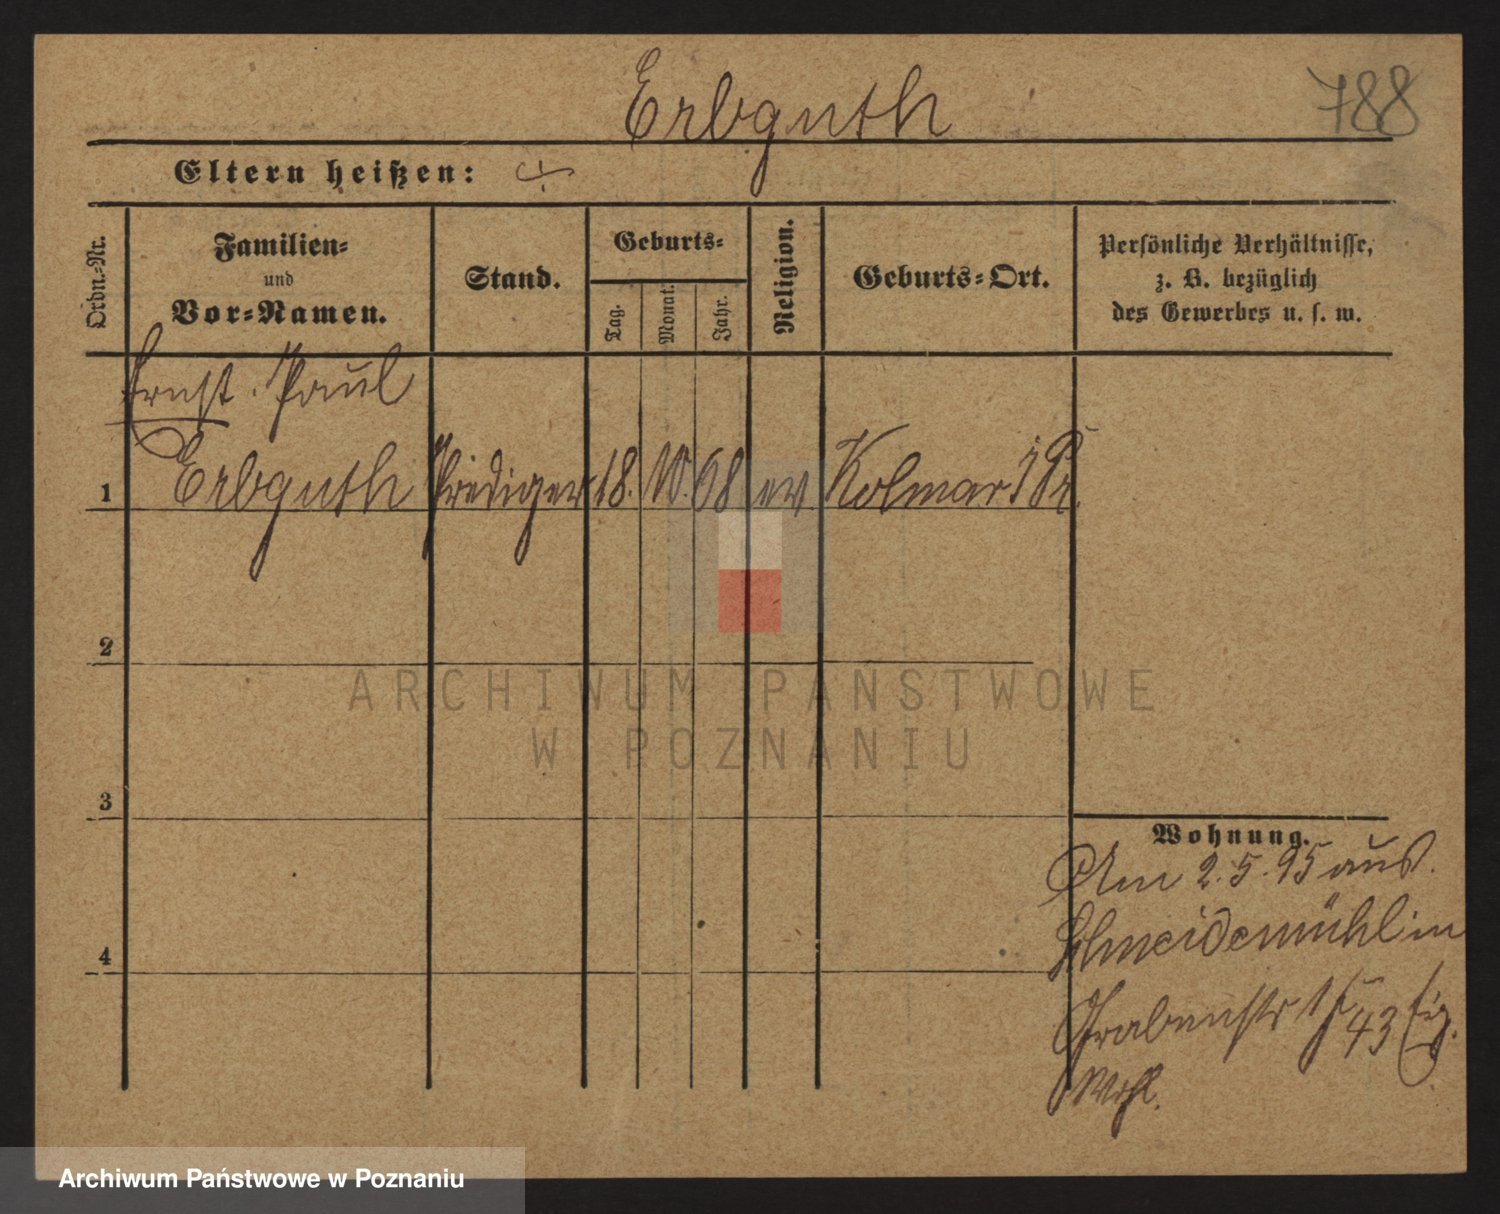 Erbguth
788
Eltern heißen:
Ordn.-Nr.
Familien-
und
Vor-Namen.
Stand.
Geburts-
Tag.
Monat.
Jahr.
Religion.
Geburts-Ort.
Persönliche Verhältnisse,
z. B. bezüglich
des Gewerbes u. s. w.
Ernst Paul
1 Erbguth Prediger 18. 10. 68 ev Kolmar i Pr.
2
3
4
Wohnung.
Am 2.5.95 aus
Schneidemühl in
Grabenstr 43
Wohl.
ARCHIWUM PAŃSTWOWE
W POZNANIU
Archiwum Państwowe w Poznaniu